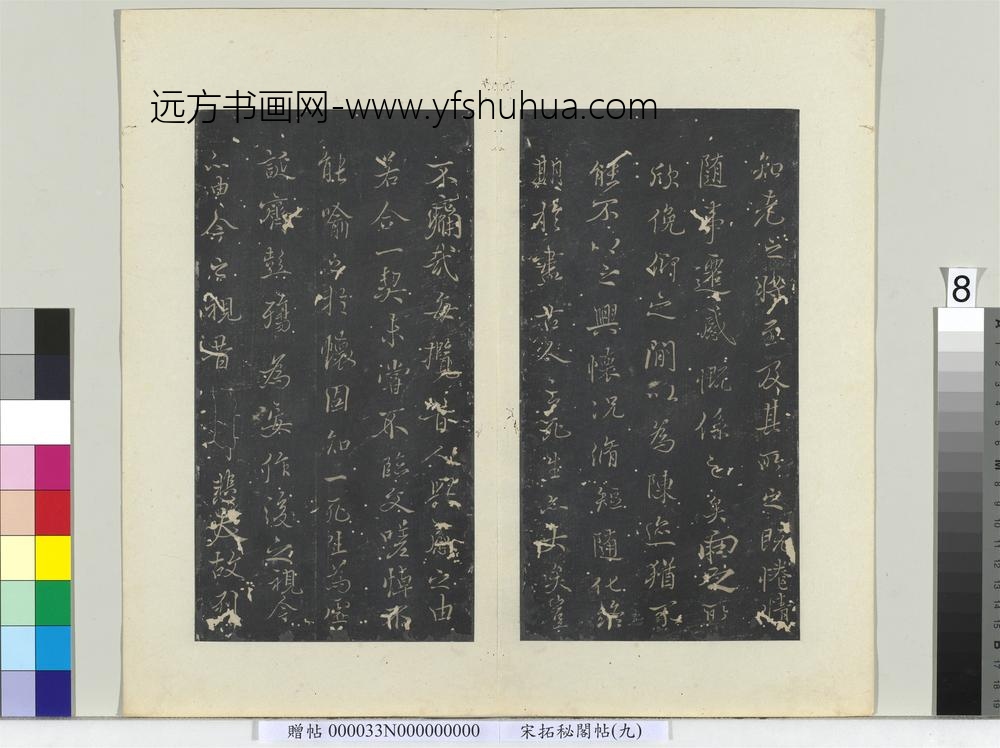 远方书画网-www.yfshuhua.com
知老之將至及其所之既惓情
隨事遷感慨係之矣向之所
欣俛仰之間以為陳迹猶不
能不以之興懷況脩短隨化終
期於盡古人云死生亦大矣豈
不痛哉每攬昔人興感之由
若合一契未嘗不臨文嗟悼不
能喻之於懷固知一死生為虛
誕齊彭殤為妄作後之視今
亦由今之視昔悲夫故列
8
贈帖 000033N000000000 宋拓秘閣帖(九)